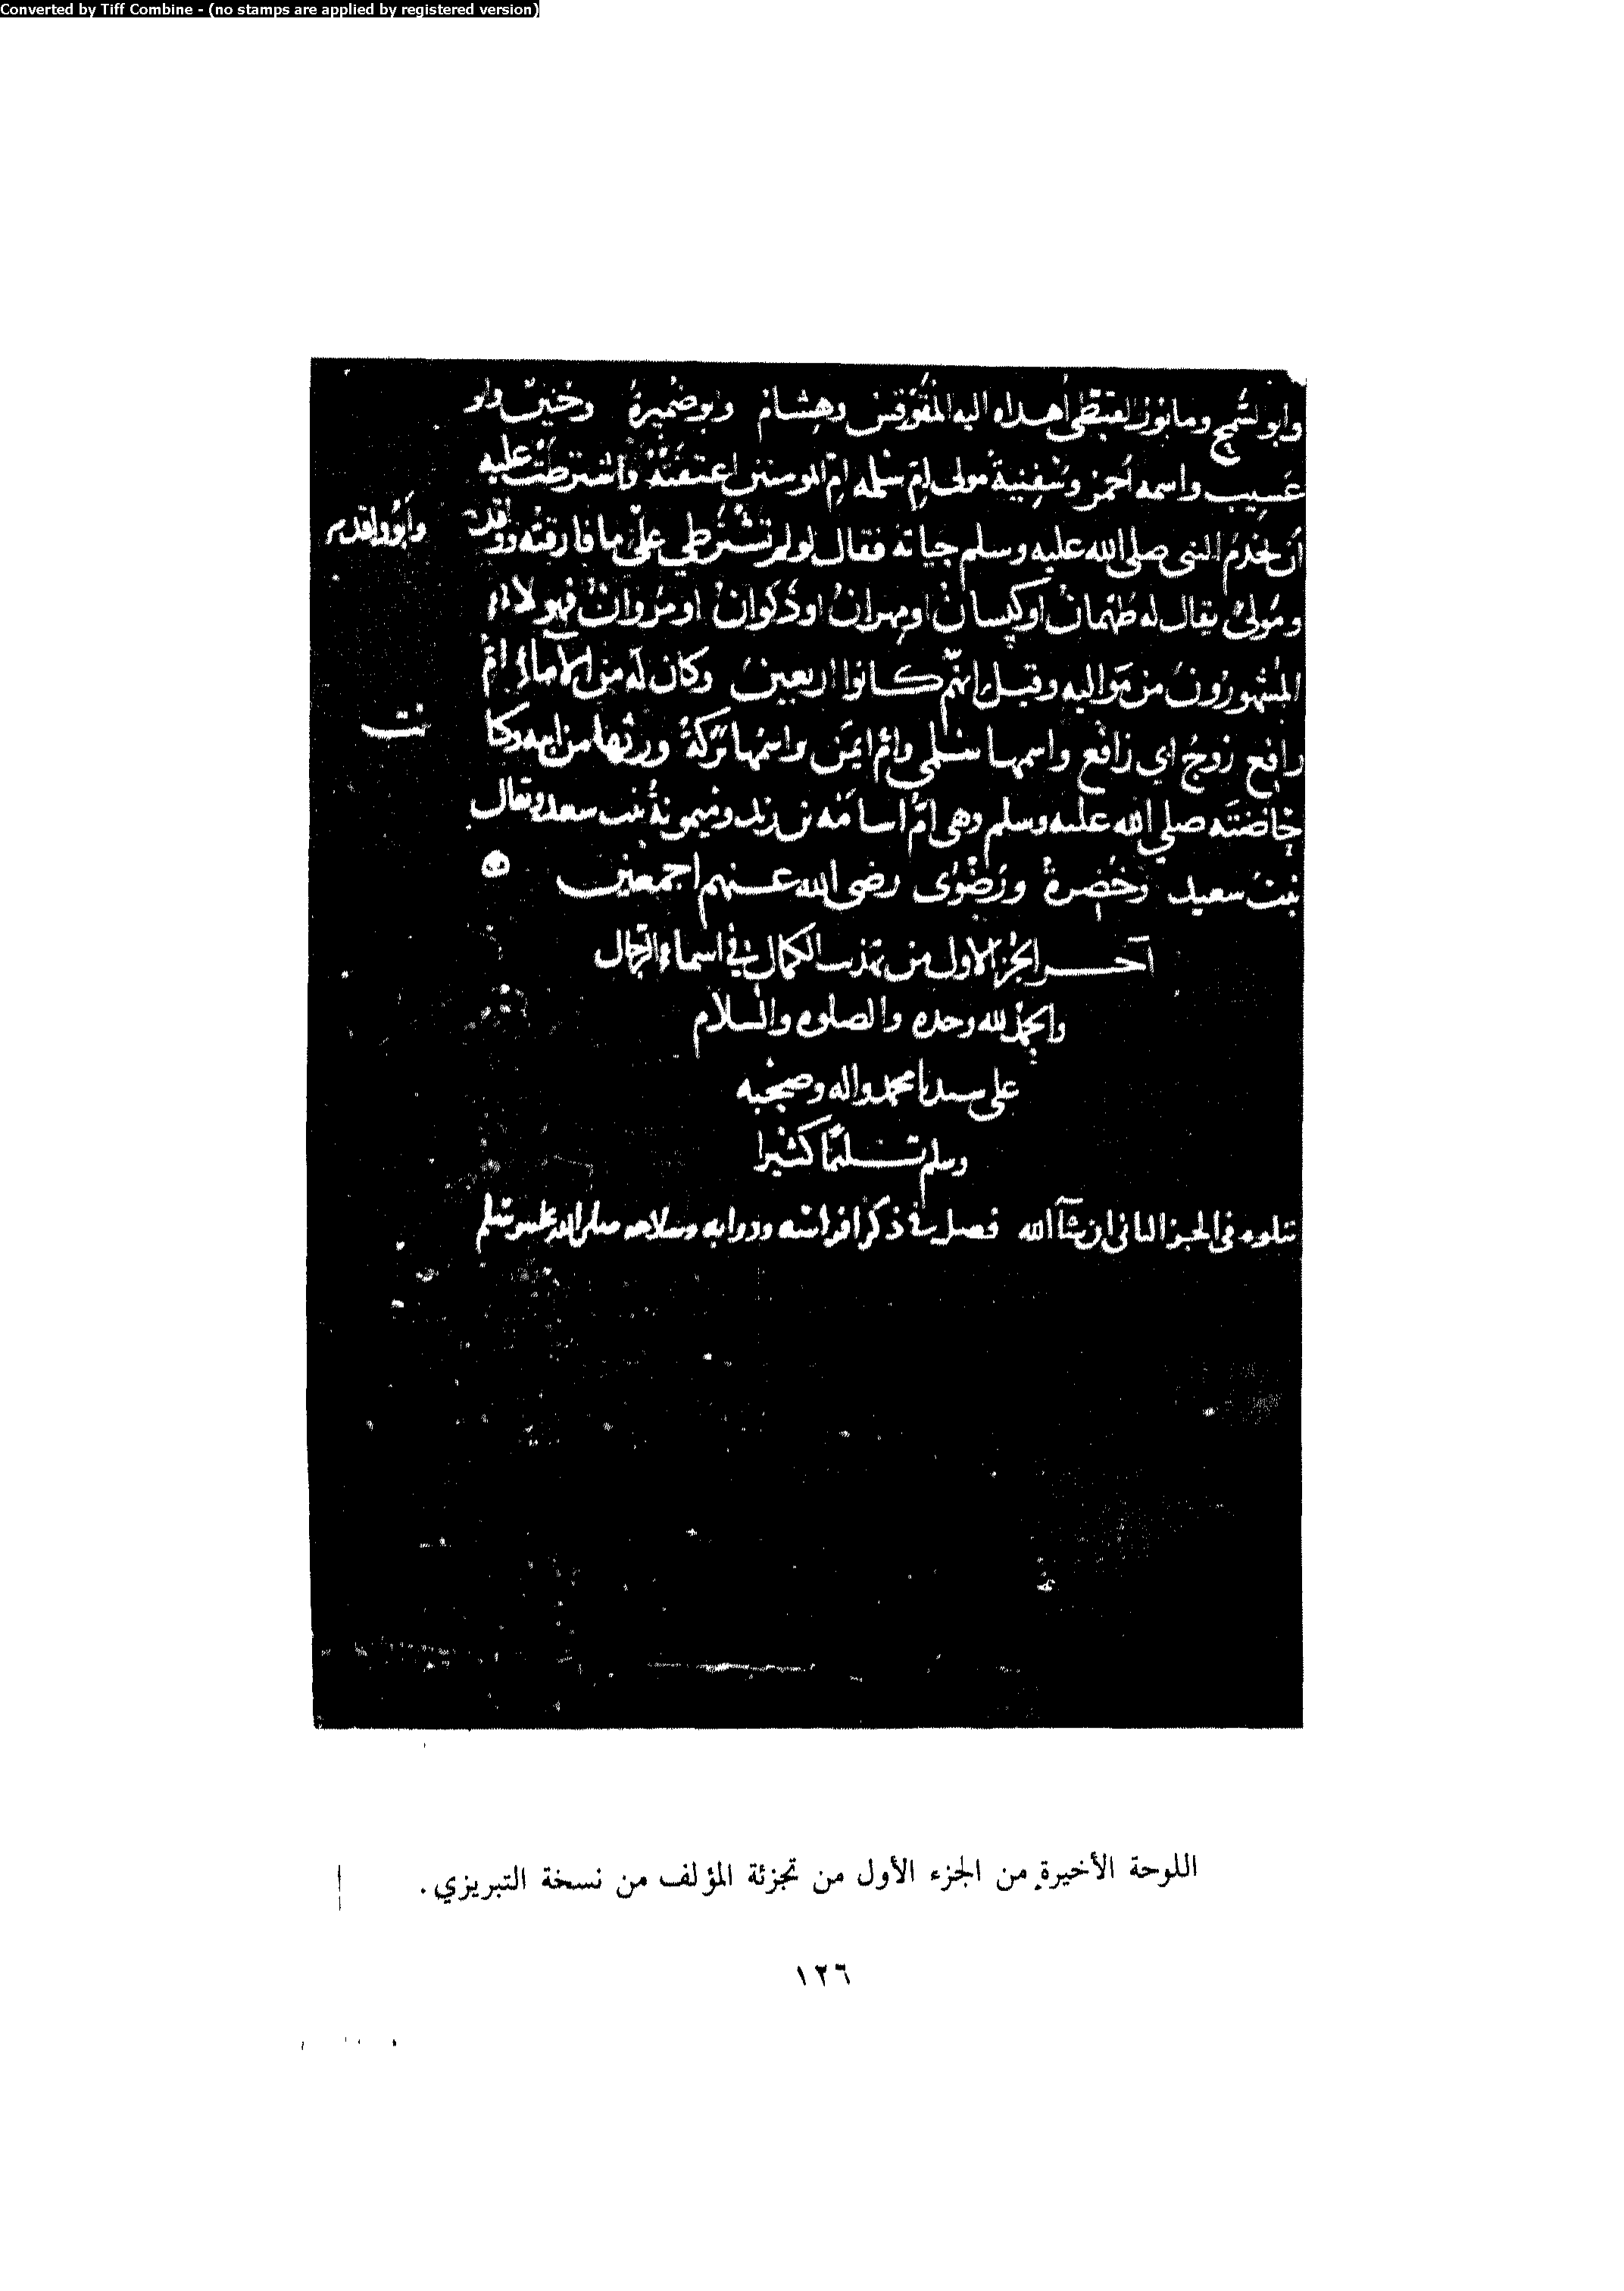 Converted by Tiff Combine - (no stamps are applied by registered version)
وابو السمح ومابور القبطي أهداه اليه المقوقس وهشام وابو ضميرة وحنين وابو
عسيب واسمه أحمر وسفينة مولى ام سلمه ام المومنين اعتقته واشترطت عليه
أن يخدم النبي صلى الله عليه وسلم حياته فقال لو لم تشترطي علي ما فارقته وواقد
وأبو واقد
ومولى يقال له طهمان او كيسان او مهران او ذكوان او مروان فهولاء
المشهورون من مواليه وقيل انهم كانوا اربعين وكان له من الاماء ام
رافع زوج ابي رافع واسمها سلمى وام ايمن واسمها بركة ورثها من ابيه وكا
نت
حاضنته صلى الله عليه وسلم وهي ام اسامة بن زيد وميمونة بنت سعد ويقال
بنت سعيد وخضرة ورضوى رضي الله عنهم اجمعين
آخر الجزء الاول من تهذيب الكمال في اسماء الرجال
والحمد لله وحده والصلوه والسلام
على سيدنا محمد واله وصحبه
وسلم تسليما كثيرا
يتلوه في الجزء الثاني ان شآ الله فصل في ذكر افراسه ودوابه وسلاحه صلى الله عليه وسلم
اللوحة الأخيرة من الجزء الأول من تجزئة المؤلف من نسخة التبريزي.
١٢٦